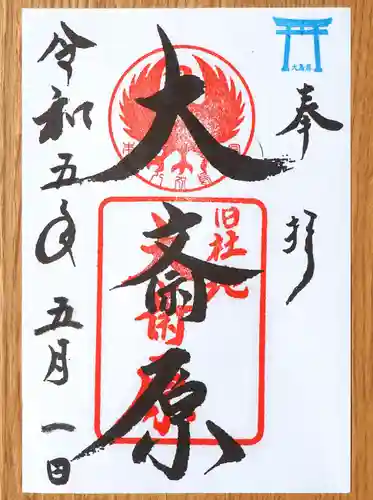 奉拝
大斎原
旧社地
大斎原
令和五年五月一日